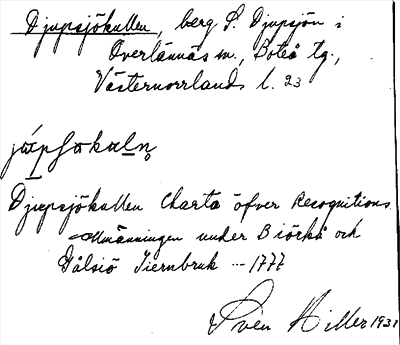 Djupsjökullen, berg S. Djupsjön i
Överlännäs sn., Boteå tg.,
Västernorrlands l. 23
Djupsjökullen Charta öfver Recognitions
allmänningen under Biörkå och
Gålsiö Jernbruk --- 1777
Sven Hiller 1931